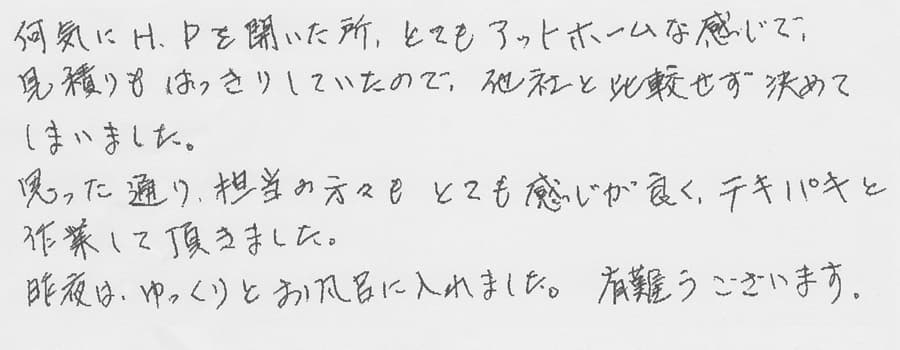 何気にH.Pを開いた所、とてもアットホームな感じで、
見積りもはっきりしていたので、他社と比較せず決めて
しまいました。
思った通り、担当の方々もとても感じが良く、テキパキと
作業して頂きました。
昨夜は、ゆっくりとお風呂に入れました。 有難うございます。